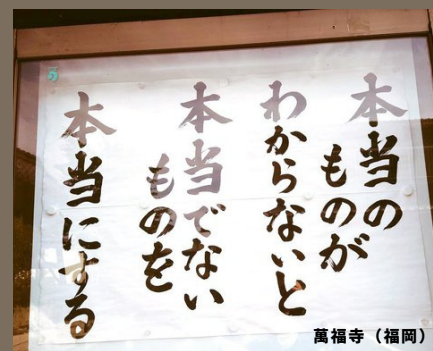 本当の
ものが
わからないと
本当でない
ものを
本当にする
萬福寺（福岡）